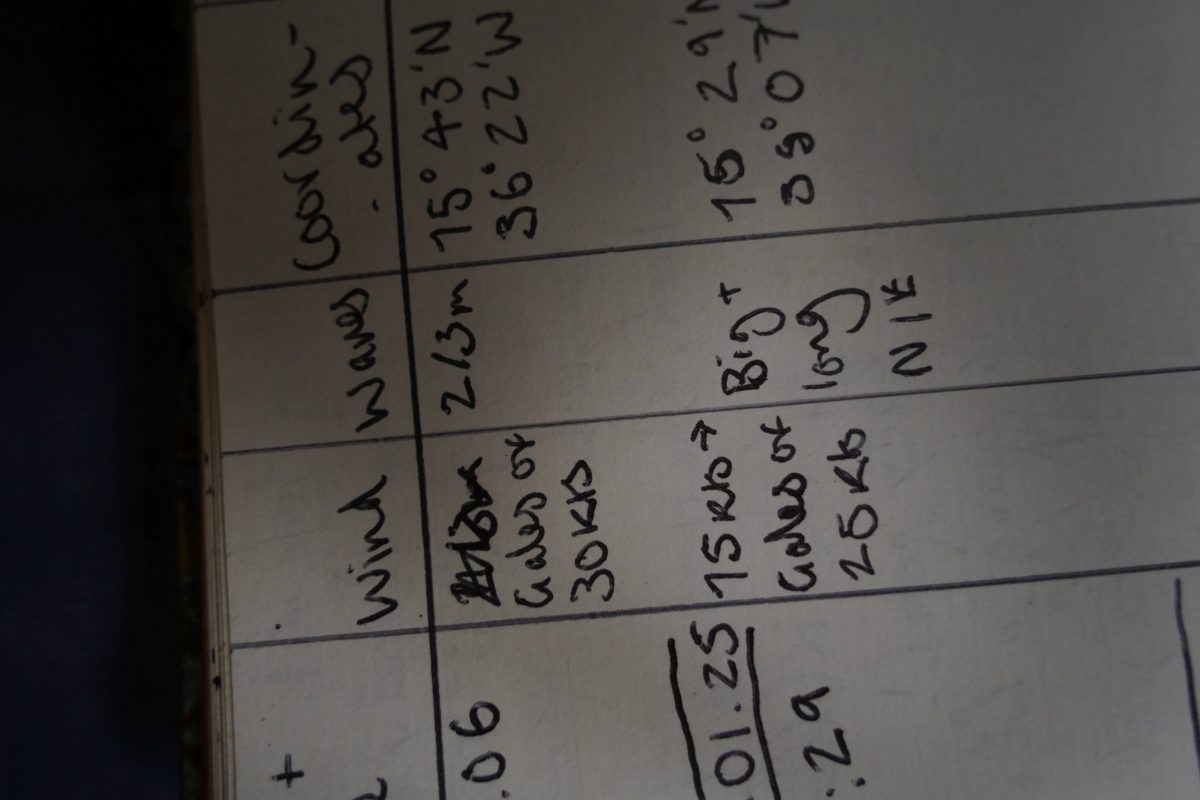 +
Wind
Waves
Coordin-
- ates
.06
Gales of
30 Kts
2/3m
15°43'N
36°22'W
.01.25
:29
15 Kts →
Gales of
25 Kts
Big +
long
15°29'N
38°07'